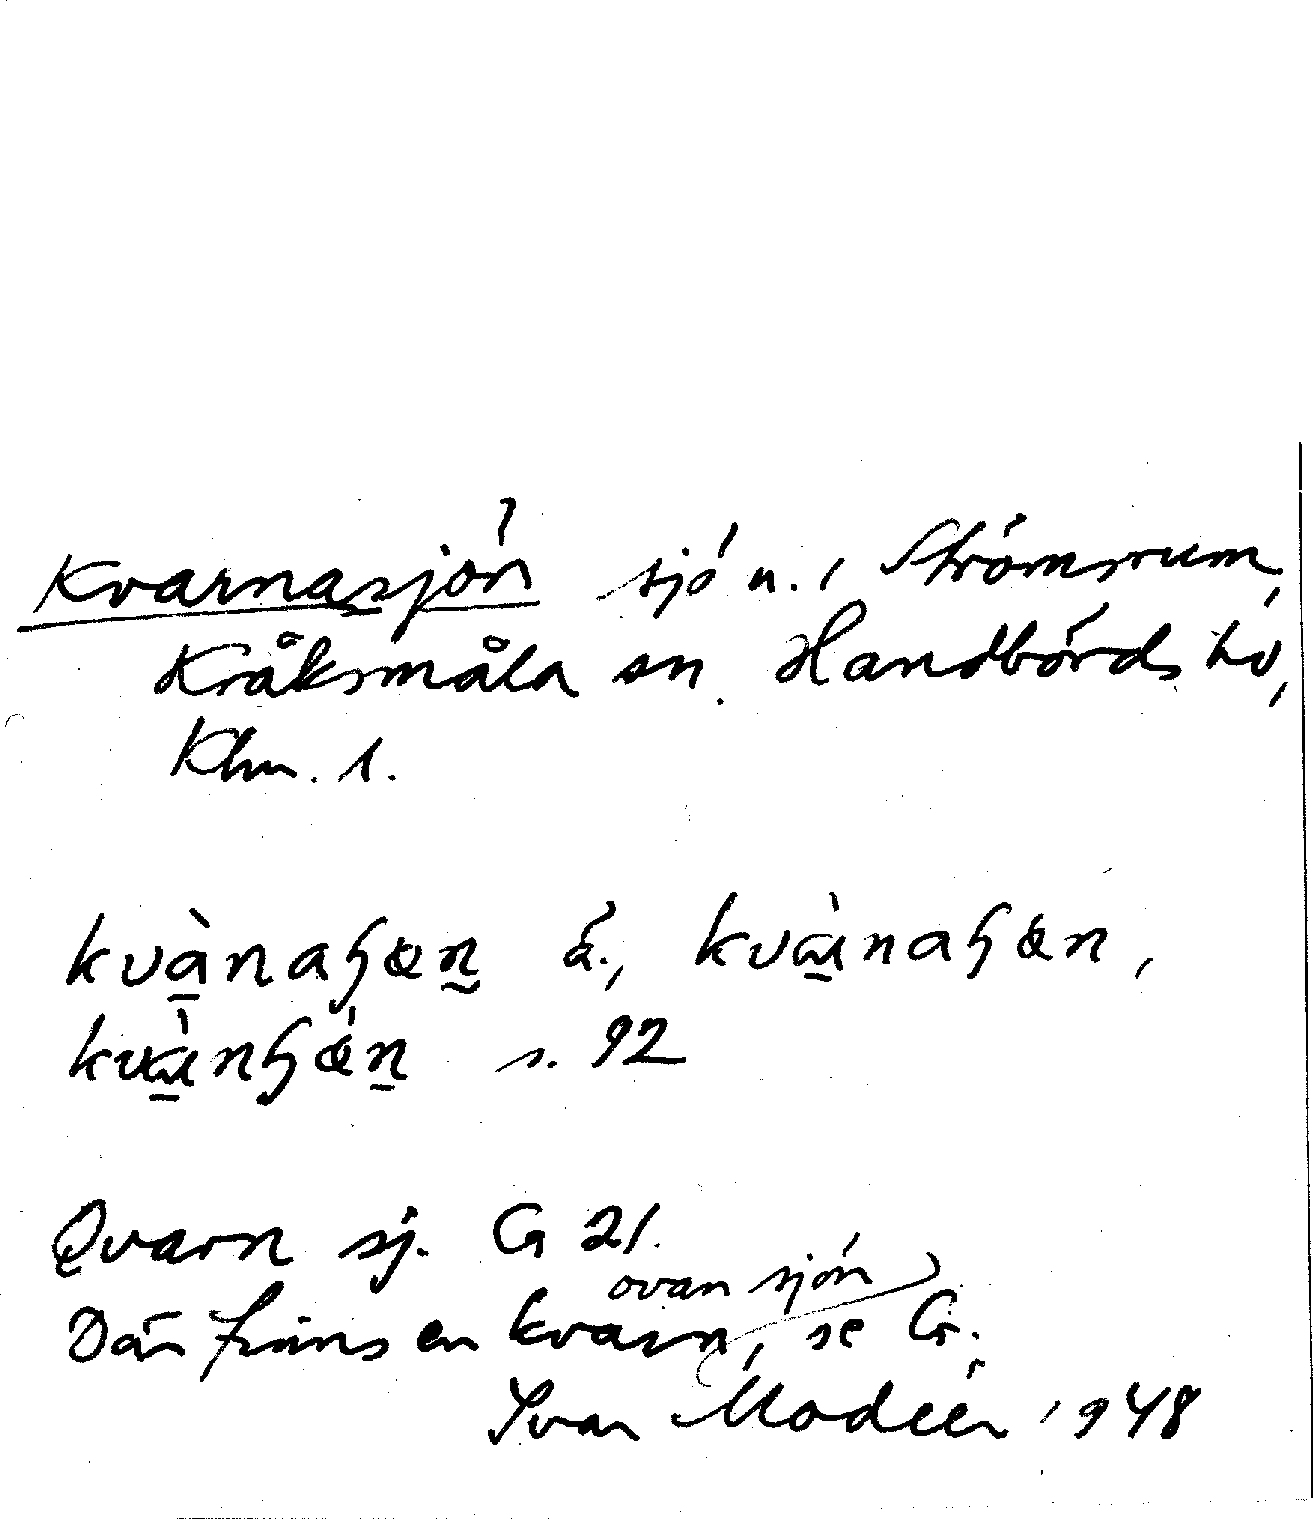 Kvarnasjön sjö n. i Strömsrum,
Kråksmåla sn. Handbörds hd,
Klm. l.
kvànaɧøn ä.,
s. 92
Qvarn sj. G 21.
ovan sjön
Där finns en kvarn, se G.
Ivar Modéer 1948